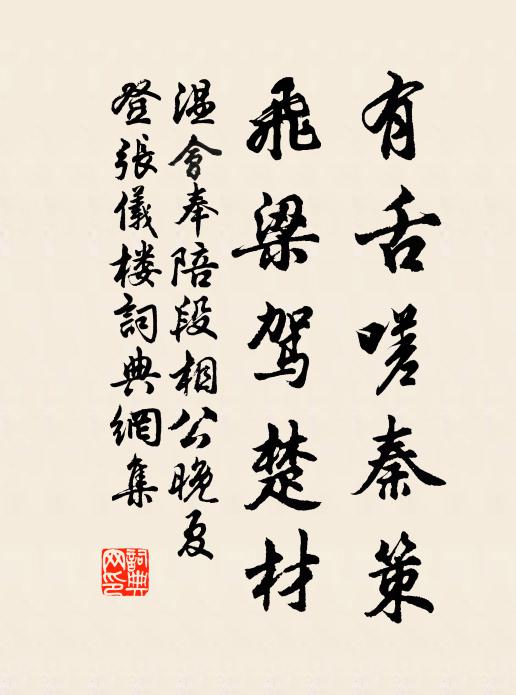 有舌嗟秦策
飛梁駕楚材
温會奉陪段相公晚夏
登張儀楼詞典網集
詞典网印